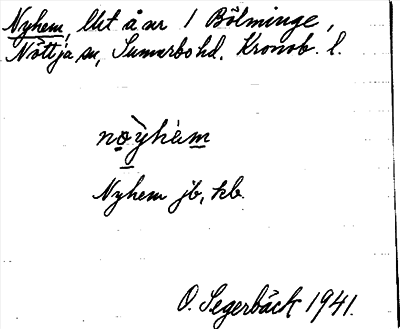 Nyhem, lht å ar 1 Bölminge,
Nöttja sn, Sunnerbo hd. Kronob. l.
nöỳhèm
Nyhem jb, kb.
O. Segerbäck 1941.